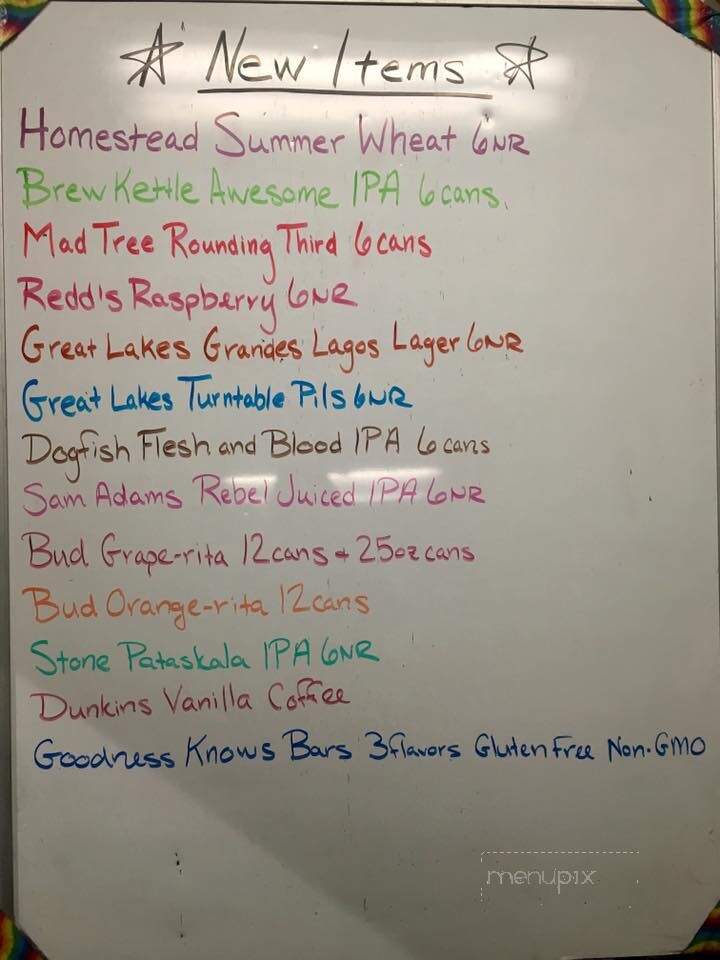 ☆ New Items ☆
Homestead Summer Wheat 6NR
Brew Kettle Awesome IPA 6 cans.
Mad Tree Rounding Third 6 cans
Redd's Raspberry 6NR
Great Lakes Grandes Lagos Lager 6NR
Great Lakes Turntable Pils 6NR
Dogfish Flesh and Blood IPA 6 cans
Sam Adams Rebel Juiced IPA 6NR
Bud Grape-rita 12cans + 25oz cans
Bud Orange-rita 12cans
Stone Pataskala IPA 6NR
Dunkins Vanilla Coffee
Goodness Knows Bars 3flavors Gluten Free Non-GMO
menupix